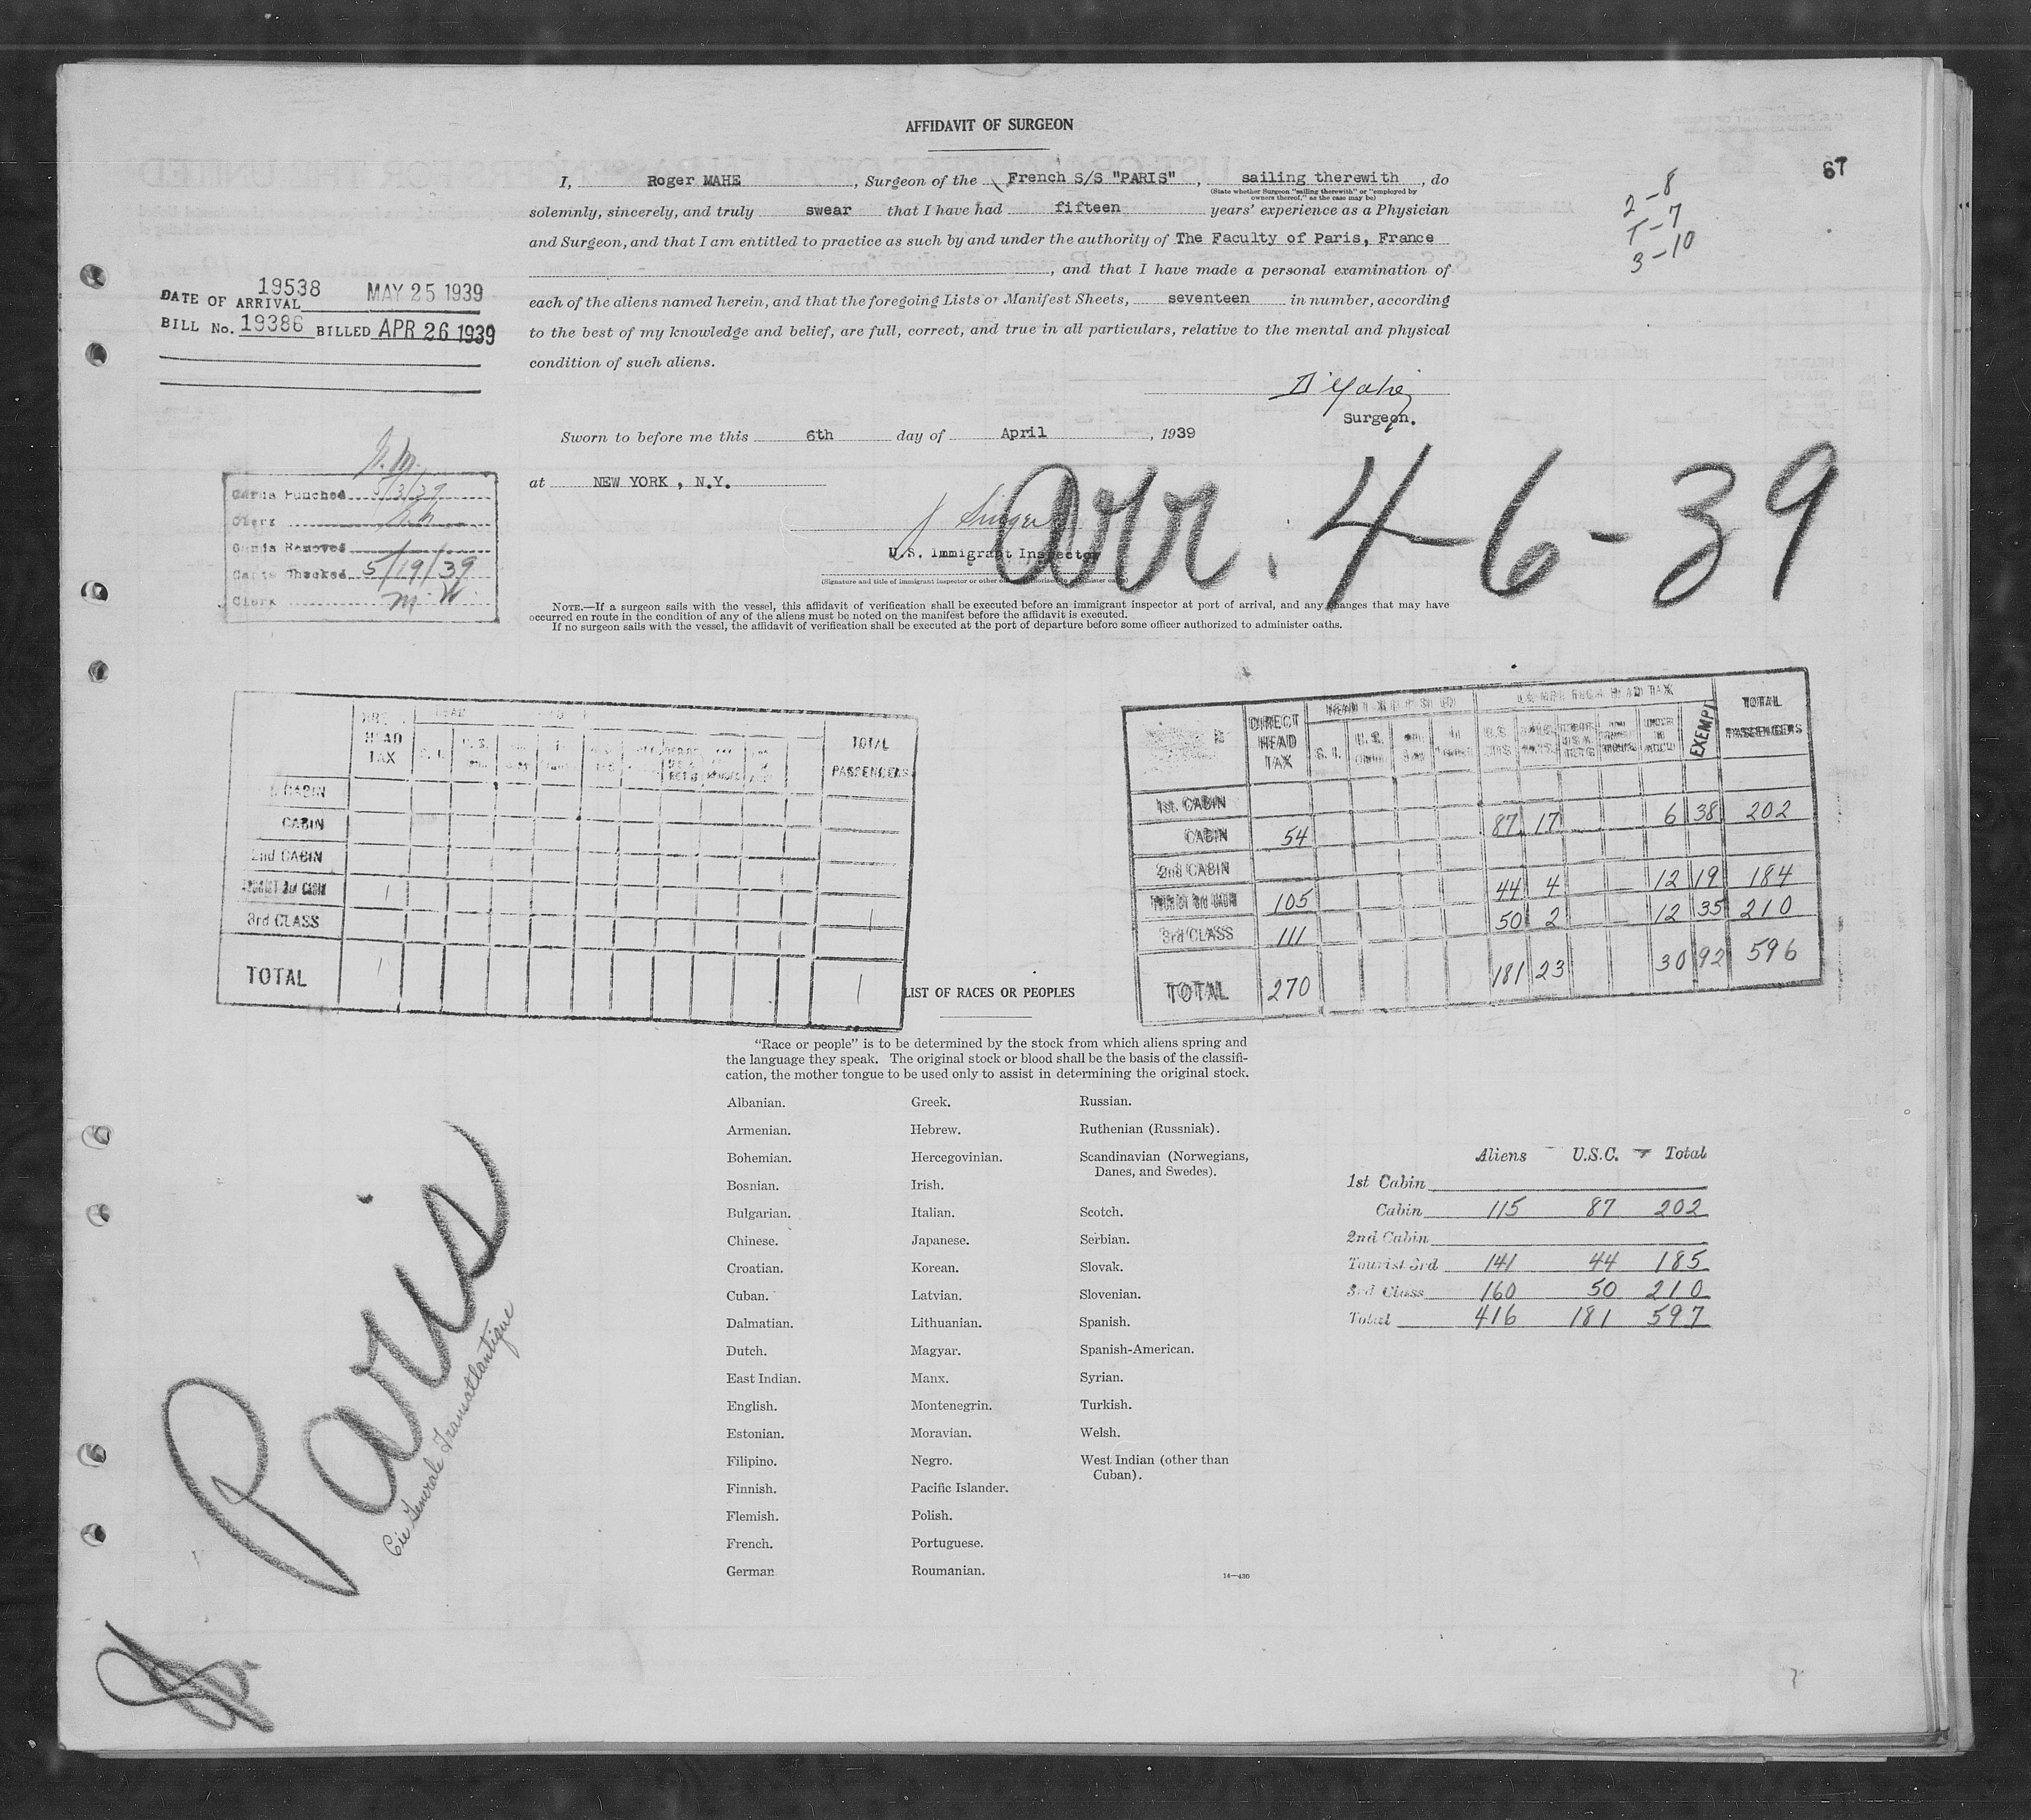 AFFIDAVIT OF SURGEON
67
I, Roger MAHE, Surgeon of the French S/S "PARIS", sailing therewith, do
(State whether Surgeon "sailing therewith" or "employed by
owners thereof," as the case may be)
solemnly, sincerely, and truly swear that I have had fifteen years' experience as a Physician
and Surgeon, and that I am entitled to practice as such by and under the authority of The Faculty of Paris, France
, and that I have made a personal examination of
each of the aliens named herein, and that the foregoing Lists or Manifest Sheets, seventeen in number, according
to the best of my knowledge and belief, are full, correct, and true in all particulars, relative to the mental and physical
condition of such aliens.
2-8
T-7
3-10
19538 MAY 25 1939
DATE OF ARRIVAL
BILL No. 19386 BILLED APR 26 1939
Surgeon.
Sworn to before me this 6th day of April, 1939
at NEW YORK, N.Y.
U.S. Immigrant Inspector
(Signature and title of immigrant inspector or other
arr. 4-6-39
Cards Punched 5/3/39
Clerk
Cards Removed
Cards Checked 5/19/39
Clerk M.W.
NOTE.—If a surgeon sails with the vessel, this affidavit of verification shall be executed before an immigrant inspector at port of arrival, and any changes that may have
occurred en route in the condition of any of the aliens must be noted on the manifest before the affidavit is executed.
If no surgeon sails with the vessel, the affidavit of verification shall be executed at the port of departure before some officer authorized to administer oaths.
HEAD TAX TOTAL PASSENGERS
CABIN
CABIN
2nd CABIN
3rd CABIN 1
3rd CLASS 1
TOTAL 1 1
DIRECT HEAD TAX EXEMPT TOTAL PASSENGERS
1st. CABIN
CABIN 54 87 17 6 38 202
2nd CABIN
105 44 4 12 19 184
3rd CLASS 111 50 2 12 35 210
TOTAL 270 181 23 30 92 596
LIST OF RACES OR PEOPLES
"Race or people" is to be determined by the stock from which aliens spring and
the language they speak. The original stock or blood shall be the basis of the classifi-
cation, the mother tongue to be used only to assist in determining the original stock.
Albanian.
Armenian.
Bohemian.
Bosnian.
Bulgarian.
Chinese.
Croatian.
Cuban.
Dalmatian.
Dutch.
East Indian.
English.
Estonian.
Filipino.
Finnish.
Flemish.
French.
German
Greek.
Hebrew.
Hercegovinian.
Irish.
Italian.
Japanese.
Korean.
Latvian.
Lithuanian.
Magyar.
Manx.
Montenegrin.
Moravian.
Negro.
Pacific Islander.
Polish.
Portuguese.
Roumanian.
Russian.
Ruthenian (Russniak).
Scandinavian (Norwegians,
Danes, and Swedes).
Scotch.
Serbian.
Slovak.
Slovenian.
Spanish.
Spanish-American.
Syrian.
Turkish.
Welsh.
West Indian (other than
Cuban).
14—430
Aliens - U.S.C. - Total
1st Cabin
Cabin 115 87 202
2nd Cabin
Tourist 3rd 141 44 185
3rd Class 160 50 210
Total 416 181 597
Paris
Cie Generale Transatlantique